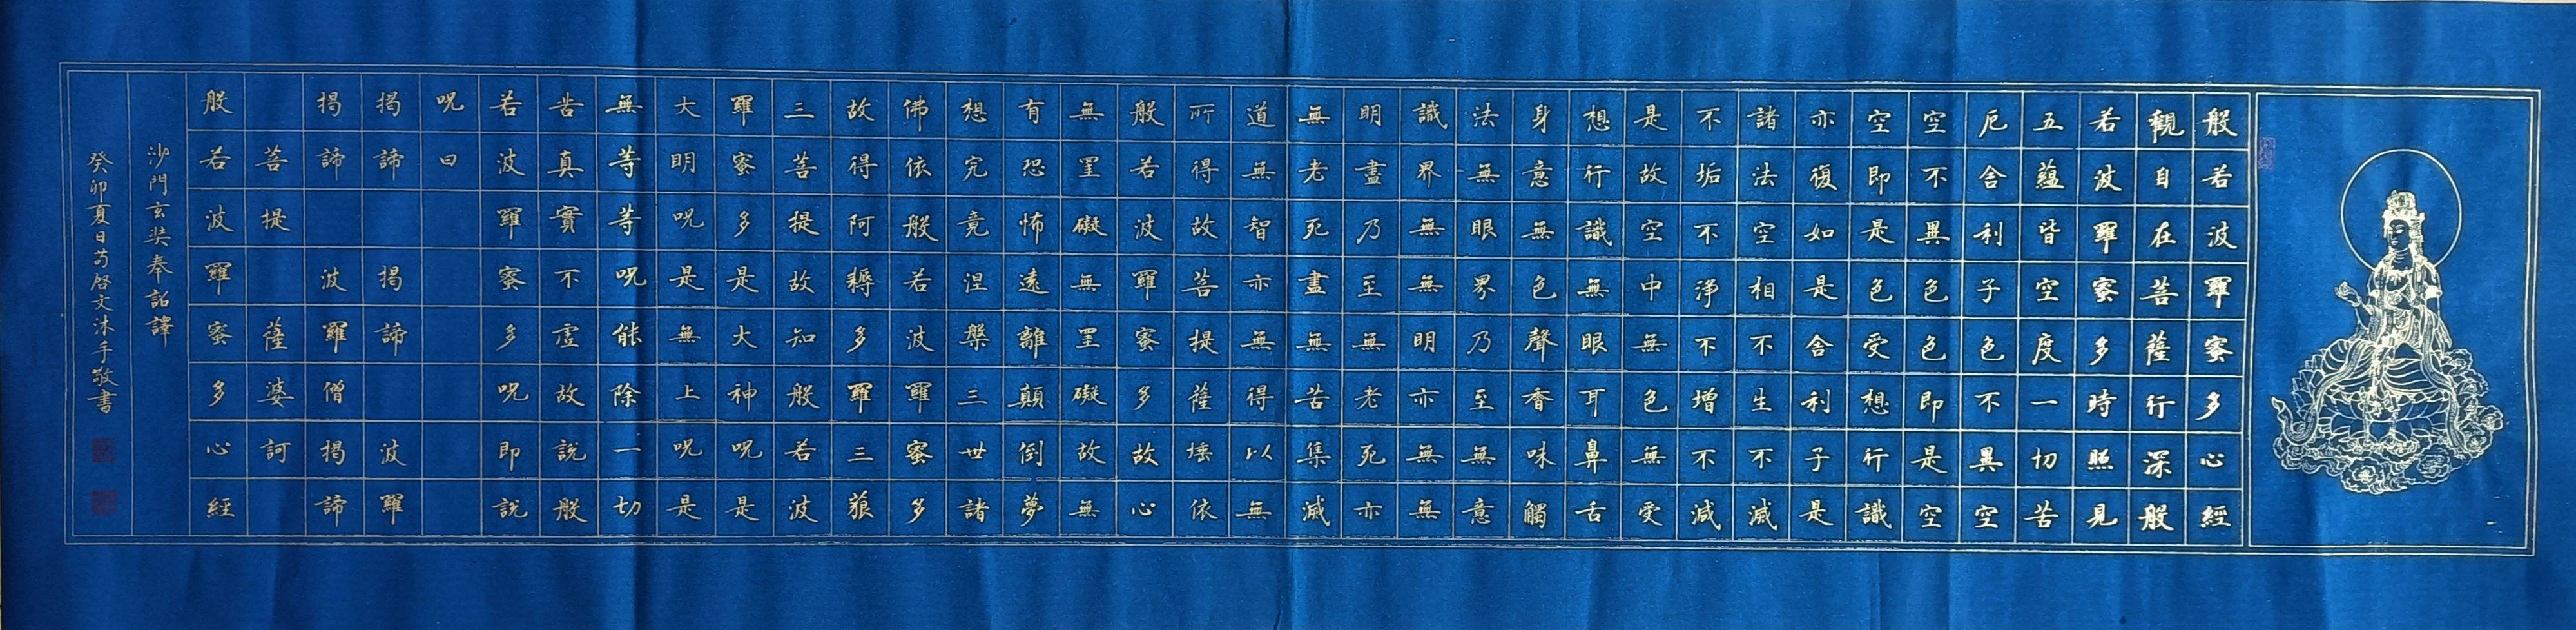 般若波羅蜜多心經
觀自在菩薩行深般
若波羅蜜多時照見
五蘊皆空度一切苦
厄舍利子色不異空
空不異色色即是空
空即是色受想行識
亦復如是舍利子是
諸法空相不生不滅
不垢不淨不增不減
是故空中無色無受
想行識無眼耳鼻舌
身意無色聲香味觸
法無眼界乃至無意
識界無無明亦無無
明盡乃至無老死亦
無老死盡無苦集滅
道無智亦無得以無
所得故菩提薩埵依
般若波羅蜜多故心
無罣礙無罣礙故無
有恐怖遠離顛倒夢
想究竟涅槃三世諸
佛依般若波羅蜜多
故得阿耨多羅三藐
三菩提故知般若波
羅蜜多是大神呪是
大明呪是無上呪是
無等等呪能除一切
苦真實不虛故說般
若波羅蜜多呪即說
呪曰
揭諦 揭諦 波羅
揭諦 波羅僧揭諦
菩提 薩婆訶
般若波羅蜜多心經
沙門玄奘奉詔譯
癸卯夏日苟啓文沐手敬書